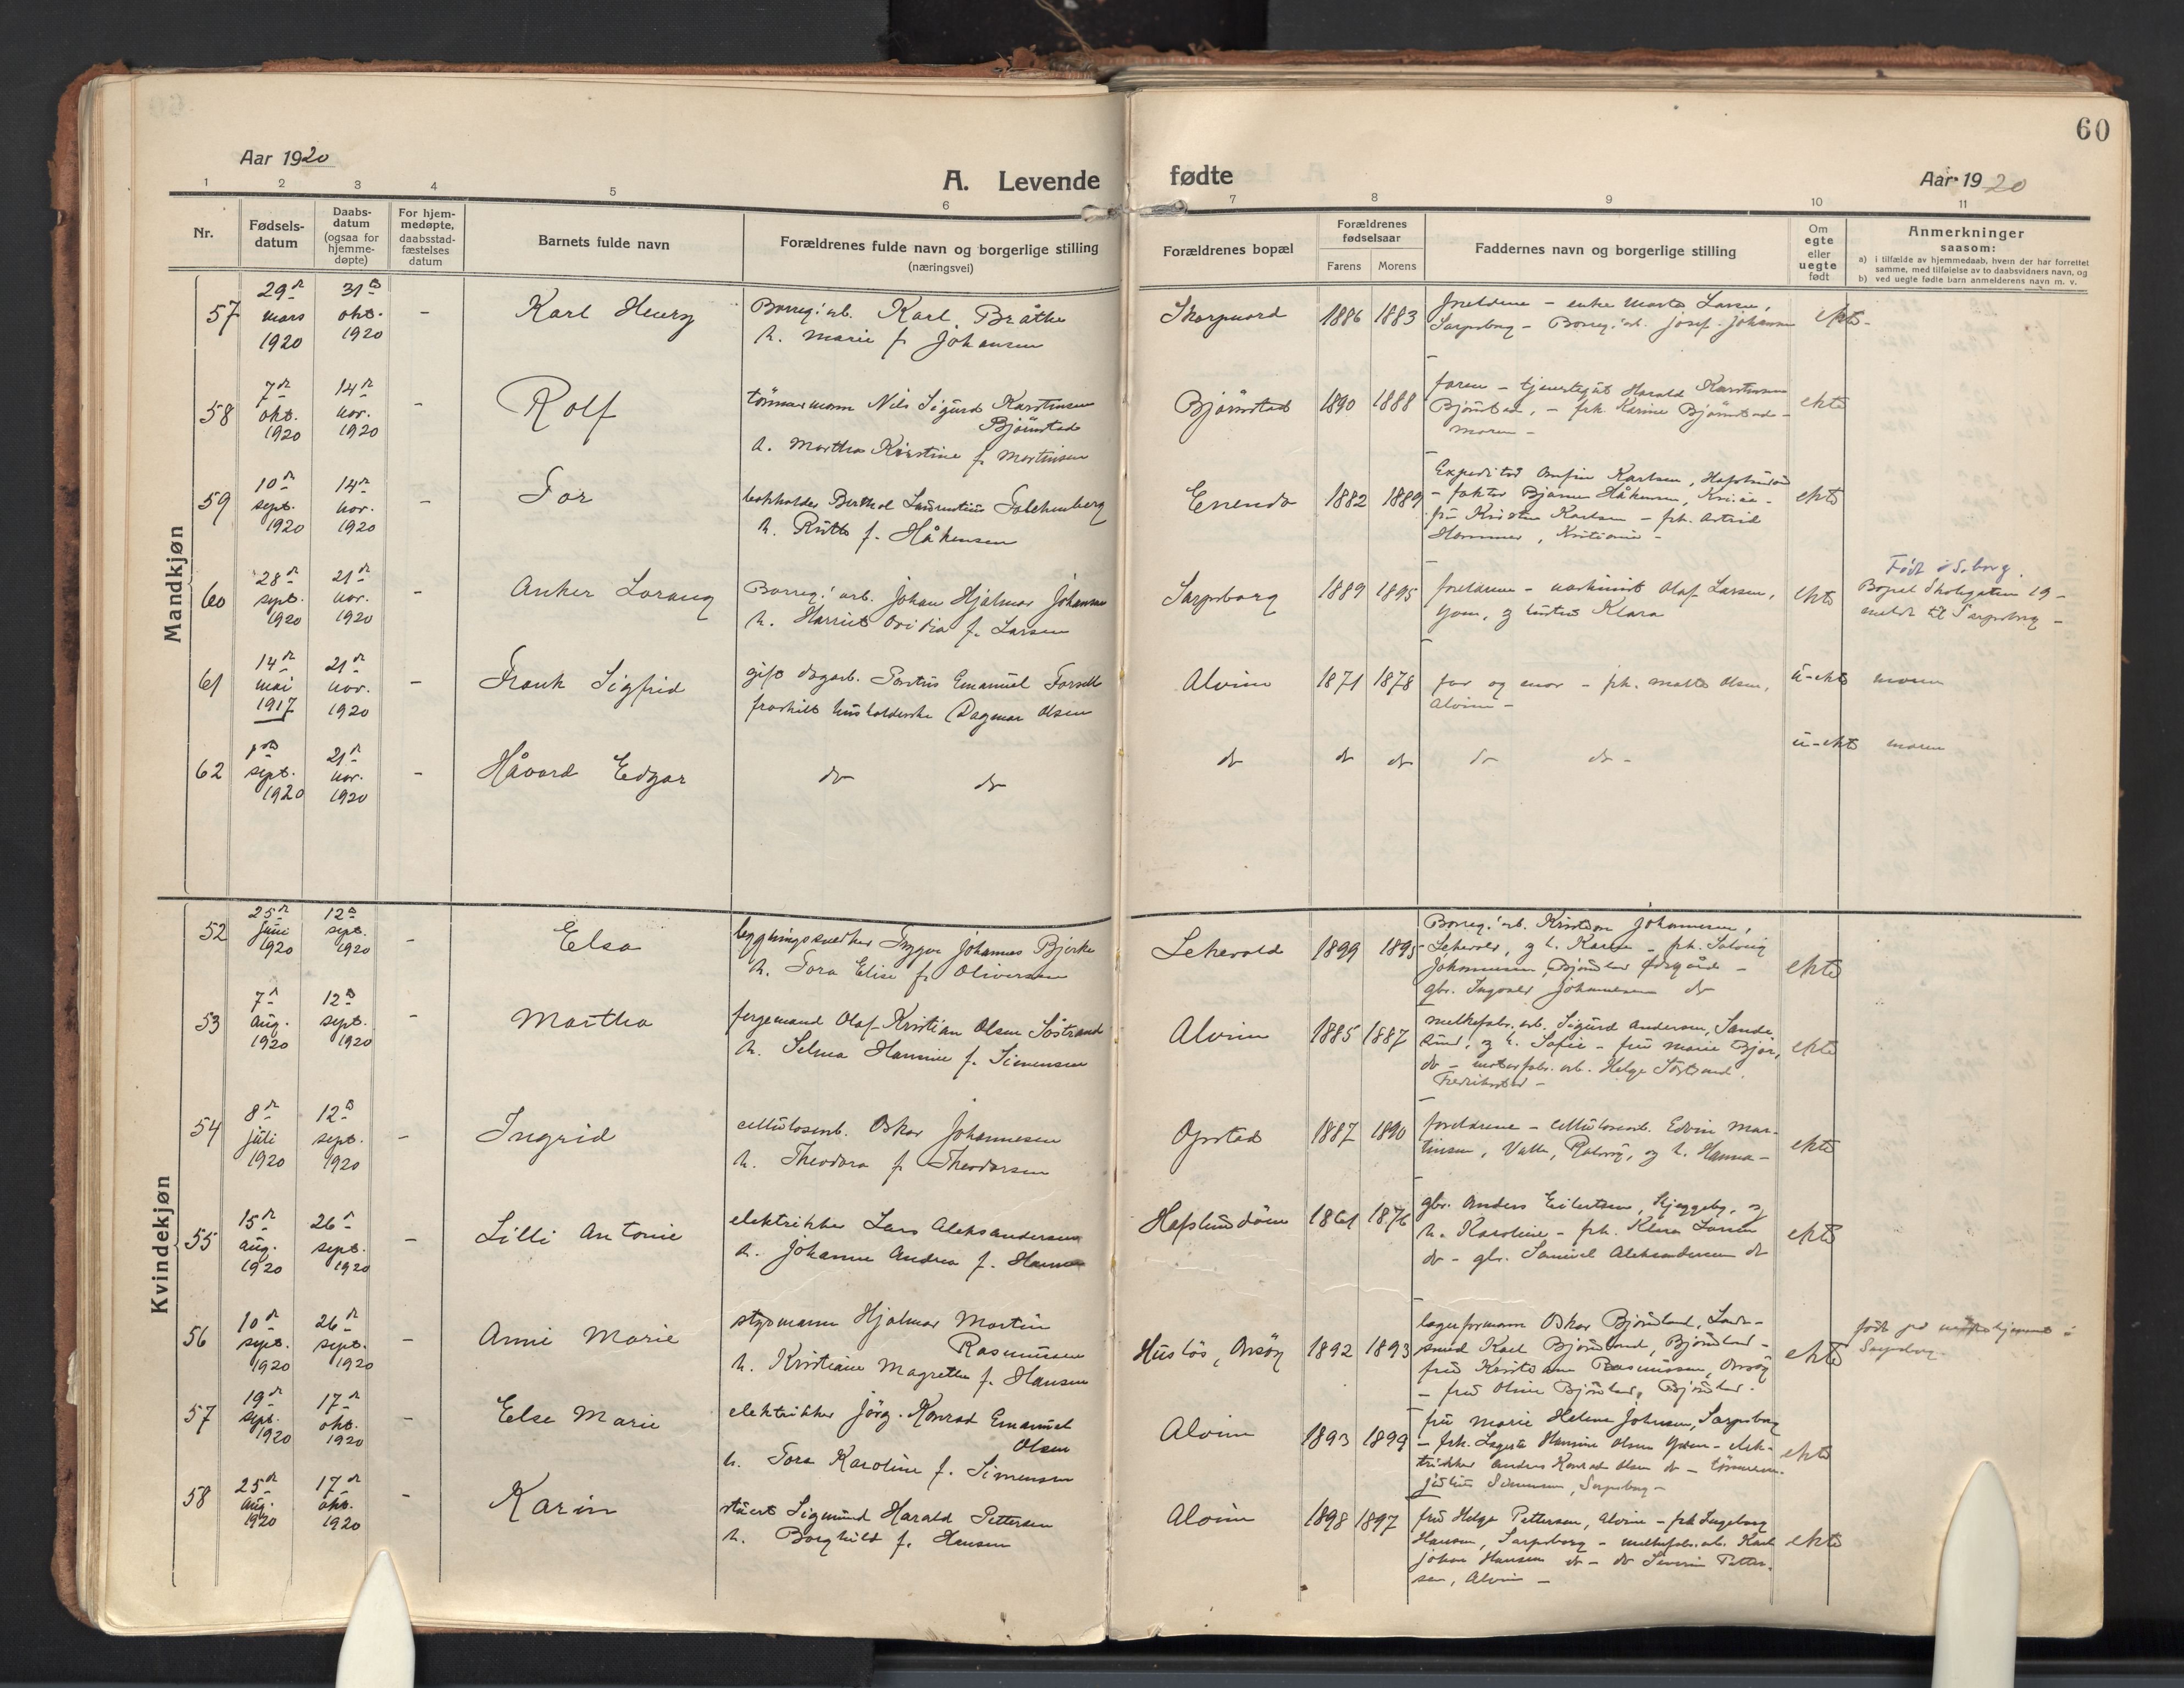 60
Aar 1920
A. Levende fødte
Aar 1920
1 2 3 4 5 6 7 8 9 10 11
Nr.
Fødsels-
datum
Daabs-
datum
(ogsaa for
hjemme-
døpte)
For hjem-
medøpte,
daabsstad-
fæstelses
datum
Barnets fulde navn
Forældrenes fulde navn og borgerlige stilling
(næringsvei)
Forældrenes bopæl
Forældrenes
fødselsaar
Farens Morens
Faddernes navn og borgerlige stilling
Om
egte
eller
uegte
født
Anmerkninger
saasom:
a) i tilfælde av hjemmedaab, hvem der har forrettet
samme, med tilføielse av to daabsvidners navn, og
b) ved uegte fødte barn anmelderens navn m. v.
Mandkjøn
57
29de mars 1920
31te okt. 1920
-
Karl Henry
Borreg. arb. Karl Bråthe
h. Marie f. Johansen
1886 1883
foreldrene - enke Marte Larsen,
Sarpsborg - Borreg. arb. Josef Johansen
ekte
58
7de okt. 1920
14de nov. 1920
-
Rolf
tömmermann Nils Sigurd Karstensen
Björnstad
h. Martha Kirstine f. Martinsen
Björnstad
1890 1888
faren - tjenestegut Harald Karstensen
Björnstad, - frk. Karine Björnstad -
moren -
ekte
59
10de sept. 1920
14de nov. 1920
-
Tor
bokholder Berthol Laurentius Falchenberg
h. Ruth f. Håkensen
Enendo
1882 1889
Expeditör Arnfin Karlsen, Hafslund
- faktor Bjarne Håkensen, Kr.ia -
fru Kirsten Karlsen - frk. Astrid
Hammer, Kristiania -
ekte
60
28de sept. 1920
21de nov. 1920
-
Anker Lorang
Borreg. arb. Johan Hjalmar Johansen
h. Harriet Ovidia f. Larsen
Sarpsborg
1889 1895
foreldrene - maskinist Olaf Larsen,
Greaa, og hustru Klara
ekte
Født i S.borg.
Bopel Skolegaten 19 -
meldt til Sarpsborg -
61
14de mai 1917
21de nov. 1920
-
Frank Sigfrid
gift dagarb. Pontus Emanuel Forsell
fraskilt husholderske Dagmar Olsen
Alvim
1871 1878
far og mor - frk. Malte Olsen,
Alvim -
u-ekte
moren
62
1ste sept. 1920
21de nov. 1920
-
Håvard Edgar
do do
do
do do
do do -
u-ekte
moren
Kvindekjøn
52
25de juni 1920
12te sept. 1920
-
Elsa
bygningssnedker Trygve Johannes Bjerke
h. Tora Elise f. Oliversen
Lekevold
1899 1895
Borreg. arb. Kristian Johannesen,
Lekevold, og h. Karen - frk. Solveig
Johannesen, Björnland
gbr. Ingvald Johannesen do
ekte
53
7de aug. 1920
12te sept. 1920
-
Martha
fergemand Olaf Kristian Olsen Söstrand
h. Selma Hansine f. Simensen
Alvim
1885 1887
melkefabr. arb. Sigurd Andersen, Sande-
sund, og h. Sofie - fru Marie
do - arb. Helge Söstrand
Fredrikstad -
ekte
54
8de juli 1920
12te sept. 1920
-
Ingrid
cellulosearb. Oskar Johannesen
h. Theodora f. Theodorsen
Opstad
1887 1890
foreldrene - cellulosearb. Edvin Mar-
tinsen, Valle, Rolvsöy, og h. Hanna -
ekte
55
15de aug. 1920
26de sept. 1920
-
Lilli Antonie
elektriker Lars Aleksandersen
h. Johanne Andrea f. Hansen
Hafslundsöen
1861 1876
gbr. Anders Eilertsen, Skjeggeby, og
h. Karoline - frk. Klara Larsen
do - gbr. Samuel Aleksandersen do
ekte
56
10de sept. 1920
26de sept. 1920
-
Anni Marie
styrmann Hjalmar Martin
Rasmussen
h. Kristiane Magrethe f. Hansen
Huslös, Onsöy
1892 1893
lagerformann Oskar Björnland,
smed Karl Björnland, Björnland -
fru Kristiane Rasmussen, Onsöy
- fru Oline Björnland, Björnland.
ekte
født på i
Sarpsborg.
57
19de sept. 1920
17de okt. 1920
-
Else Marie
elektriker Jörg. Konrad Emanuel
Olsen
h. Tora Karoline f. Simensen
Alvim
1893 1899
fru Marie Helene Johnsen, Sarpsborg
- frk. Hansine Olsen - elek-
triker Anders Konrad Olsen do -
Simensen, Sarpsborg -
ekte
58
25de aug. 1920
17de okt. 1920
-
Karin
stuert Sigmund Harald Pettersen
h. Borghild f. Hansen
Alvim
1898 1897
fru Helga Pettersen, Alvim - frk. Ingeborg
Hansen, Sarpsborg - melkefabr. arb. Karl
Johan Hansen do - do Severin Petter-
sen, Alvim -
ekte